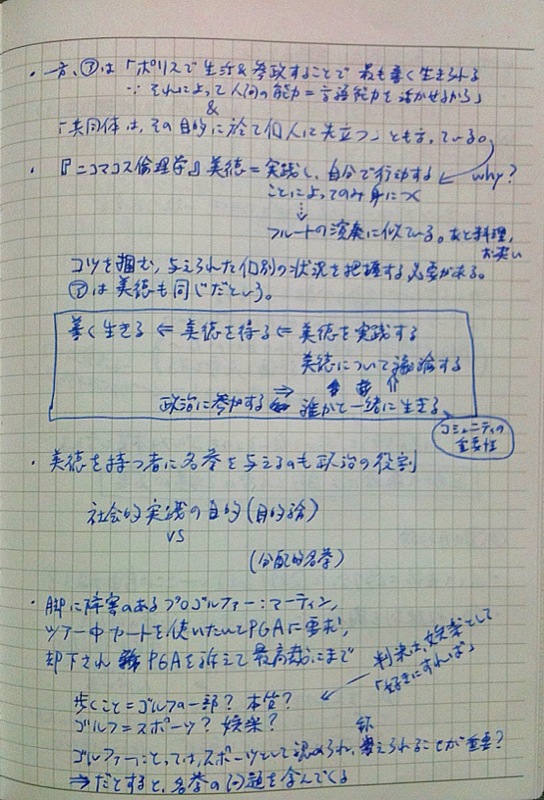 ・一方、㋐は「ポリスで生活&参政することで 最も善く生きられる
∵ それによって人間の能力=言語能力を活かせるから」
&
「共同体は、その目的に於て個人に先立つ」とも言っている。
・『ニコマコス倫理学』美徳=実践し、自分で行動する ← why?
ことによってのみ身につく
フルートの演奏に似ている。あと料理、
お笑い
コツを掴む、与えられた個別の状況を把握する必要がある。
㋐は美徳も同じだという。
善く生きる ⇐ 美徳を得る ⇐ 美徳を実践する
美徳について議論する
政治に参加する ⇒ 誰かと一緒に生きる
コミュニティの
重要性
・美徳を持つ者に名誉を与えるのも政治の役割
社会的実践の目的(目的論)
VS
(分配的名誉)
・脚に障害のあるプロゴルファー:マーティン、
ツアー中カートを使いたいとPGAに要求、
却下され PGAを訴えて最高裁にまで
判決は、娯楽として
「好きにすれば」
歩くこと=ゴルフの一部? 本質?
ゴルフ=スポーツ? 娯楽?
ゴルファーにとっては、スポーツとして認められ、称えられることが重要?
⇒だとすると、名誉の問題を含んでくる